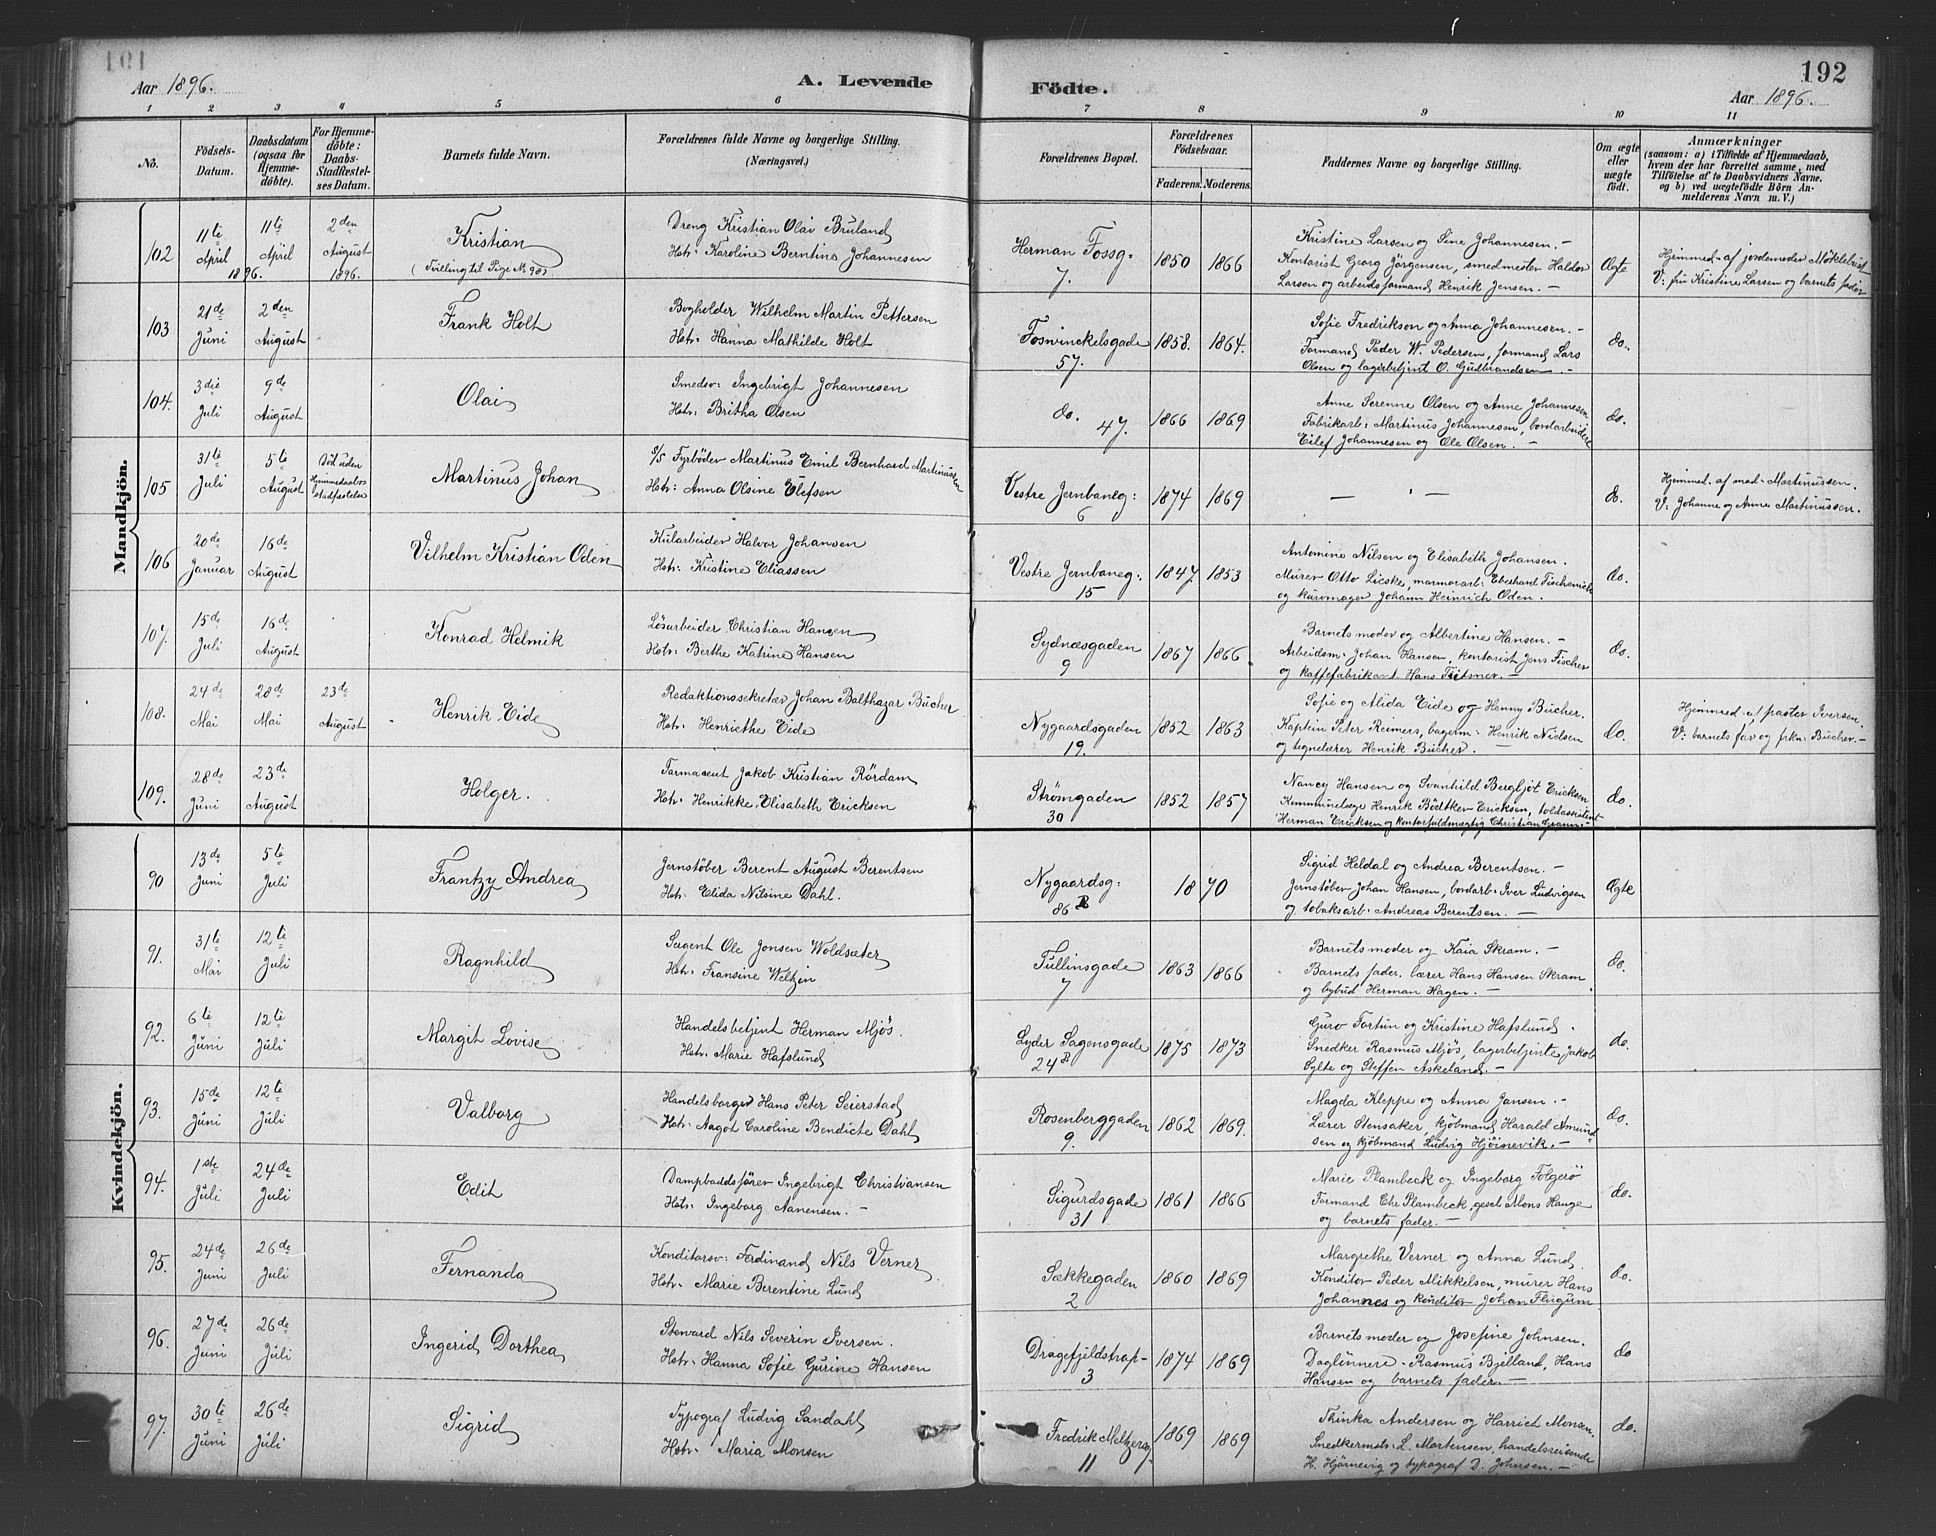 192
Aar 1896.
A. Levende
Födte.
Aar 1896.
1 2 3 4 5 6 7 8 9 10 11
No.
Födsels-Datum.
Daabsdatum (ogsaa for Hjemmedöbte).
For Hjemmedöbte: Daabs-Stadfestelses Datum.
Barnets fulde Navn.
Forældrenes fulde Navne og borgerlige Stilling.
(Næringsvei.)
Forældrenes Bopæl.
Forældrenes Födselsaar.
Faderens. Moderens.
Faddernes Navne og borgerlige Stilling.
Om ægte eller uægte födt.
Anmærkninger
(saasom: a) i Tilfælde af Hjemmedaab, hvem der har forrettet samme, med Tilföielse af to Daabsvidners Navne, og b) ved uægtefödte Börn Anmelderens Navn m. V.)
Mandkjön.
102 11te April 1896. 11te April 2den August 1896. Kristian (Tvilling til Pige No 98)
Dreng Kristian Olai Bruland
Hstr. Karoline Berntine Johannesen
Herman Fossg. 7. 1850 1866
Kristine Larsen og Sine Johannesen. -
Kontorist Georg Jörgensen, smedmester Haldor
Larsen og arbeidsformand Henrik Jensen. -
Ægte
Hjemmed. af jordemoder Möklebust
V: fru Kristine Larsen og barnets fader
103 21de Juni 2den August Frank Holt
Bogholder Wilhelm Martin Pettersen
Hstr. Hanna Mathilde Holt
Foswinckelsgade 57. 1858. 1864.
Sofie Fredrikson og Anna Johannesen. -
Formand Peder W. Pedersen, formand Lars
Olsen og lagerbetjent O. Gudbrandsen. -
do.
104. 3die Juli 9de August Olai
Smedsv. Ingebrigt Johannesen
Hstr. Britha Olsen
do. 47. 1866 1869
Anne Serenne Olsen og Anne Johannesen.
Fabrikarb. Martinus Johannesen, bordarbeider
Eilef Johannesen og Ole Olsen. -
do.
105 31te Juli 5te August Död uden Hjemmedaabs stadfæstelse Martinus Johan
s/s Fyrböder Martinus Emil Bernhard Martinussen
Hstr: Anna Olsine Elefsen
Vestre Jernbaneg: 6 1874 1869
- " -
do.
Hjemmed. af mad. Martinussen.
V: Johanne og Anna Martinussen.
106 20de Januar 16de August Vilhelm Kristian Oden
Kularbeider Halvor Johansen
Hstr: Kristine Eliassen
Vestre Jernbaneg: 15 1847. 1853
Antomine Nilsen og Elisabeth Johansen.
Murer Otto Licske, marmorarb: Eberhard Fischenich
og kurvmager Johann Heinrich Oden.
do.
107. 15de Juli 16de August Konrad Helmik
Lösarbeider Christian Hansen
Hstr: Berthe Katrine Hansen
Sydnæsgaden 9 1867 1866
Barnets moder og Albertine Hansen. -
Arbeidsm. Johan Hansen, kontorist Jens Fischer
og kaffefabrikant Hans Fritsner. -
do.
108. 24de Mai 28de Mai 23de August Henrik Eide
Redaktionssekretær Johan Balthazar Bücher
Hstr. Henriethe Eide
Nygaardsgaden 19. 1852 1863
Sofie og Alida Eide og Henny Bücher.
Kaptein Peter Reimers, bagerm: Henrik Nielsen
og tegnelærer Henrik Bücher. -
do.
Hjemmed. af pastor Iversen.
V: barnets far og frkn: Bücher. -
109. 28de Juni 23de August Holger.
Farmaceut Jakob Kristian Rördam
Hstr. Henrikke Elisabeth Ericksen
Strömgaden 30 1852 1857
Nancy Hansen og Svanhild Bergljot Ericksen
Kommunelæge Henrik Bödtker Ericksen, toldassistent
Herman Ericksen og kontorfuldmægtig Christian Grann. -
do.
Kvindekjön.
90 13de Juni 5te Juli Frantzy Andrea
Jernstöber Berent August Berentsen
Hstr. Elida Nilsine Dahl.
Nygaardsg: 86 B 1870
Sigrid Heldal og Andrea Berentsen. -
Jernstöber Johan Hansen, bordarb. Iver Ludvigsen
og tobaksarb. Andreas Berentsen. -
Ægte
91. 31te Mai 12te Juli Ragnhild
Sergent Ole Jonsen Woldsæter
Hstr. Fransine Weltzin
Tullinsgade 7 1863 1866
Barnets moder og Kaia Skram. -
Barnets fader, lærer Hans Hansen Skram
og bybud Herman Hagen. -
do.
92. 6te Juni 12te Juli Margit Lovise
Handelsbetjent Herman Mjös.
Hstr. Marie Hafslund
Lyder Sagensgade 24 B 1875 1873
Guro Fortun og Kristine Hafslund.
Snedker Rasmus Mjös, lagerbetjente Jakob
Sylte og Steffen Askeland. -
do.
93. 15de Juni 12te Juli Valborg
Handelsborger Hans Peter Seierstad
Hstr. Aagot Caroline Bendicte Dahl
Rosenberggaden 9. 1862 1869.
Magda Kleppe og Anna Jansen. -
Lærer Stensaker, kjöbmand Harald Amund-
sen og kjöbmand Ludvig Hjöinevik. -
do.
94. 1ste Juli 24de Juli Edit
Dampbaadsförer Ingebrigt Christiansen
Hstr. Ingeborg Aanensen. -
Sigurdsgade 31 1861 1866
Marie Plambeck og Ingeborg Folgerö
Formand Chr. Plambeck, gesel Mons Hauge
og barnets fader. -
do.
95. 24de Juni 26de Juli Fernanda
Konditorsv. Ferdinand Nils Verner
Hstr. Marie Berentine Lund
Sækkegaden 2 1860 1869
Margrethe Verner og Anna Lund.
Konditor Peder Mikkelsen, murer Hans
Johannes og konditor Johan Flugum
do.
96. 27de Juni 26de Juli Ingerid Dorthea
Steward Nils Severin Iversen.
Hstr. Hanna Sofie Gurine Hansen
Dragefjeldstrap- 3 1874 1869
Barnets moder og Josefine Johnsen.
Daglönnere. Rasmus Bjelland, Hans
Hansen og barnets fader. -
do
97. 30te Juni 26de Juli Sigrid
Typograf Ludvig Sandahl
Hstr. Maria Monsen
Fredrik Meltzersg. 11 1869 1869
Thinka Andersen og Harriet Monsen.
Snedkermstr. L. Mortensen, handelsreisende
H. Hjörnevig og typograf D. Johnsen. -
do.